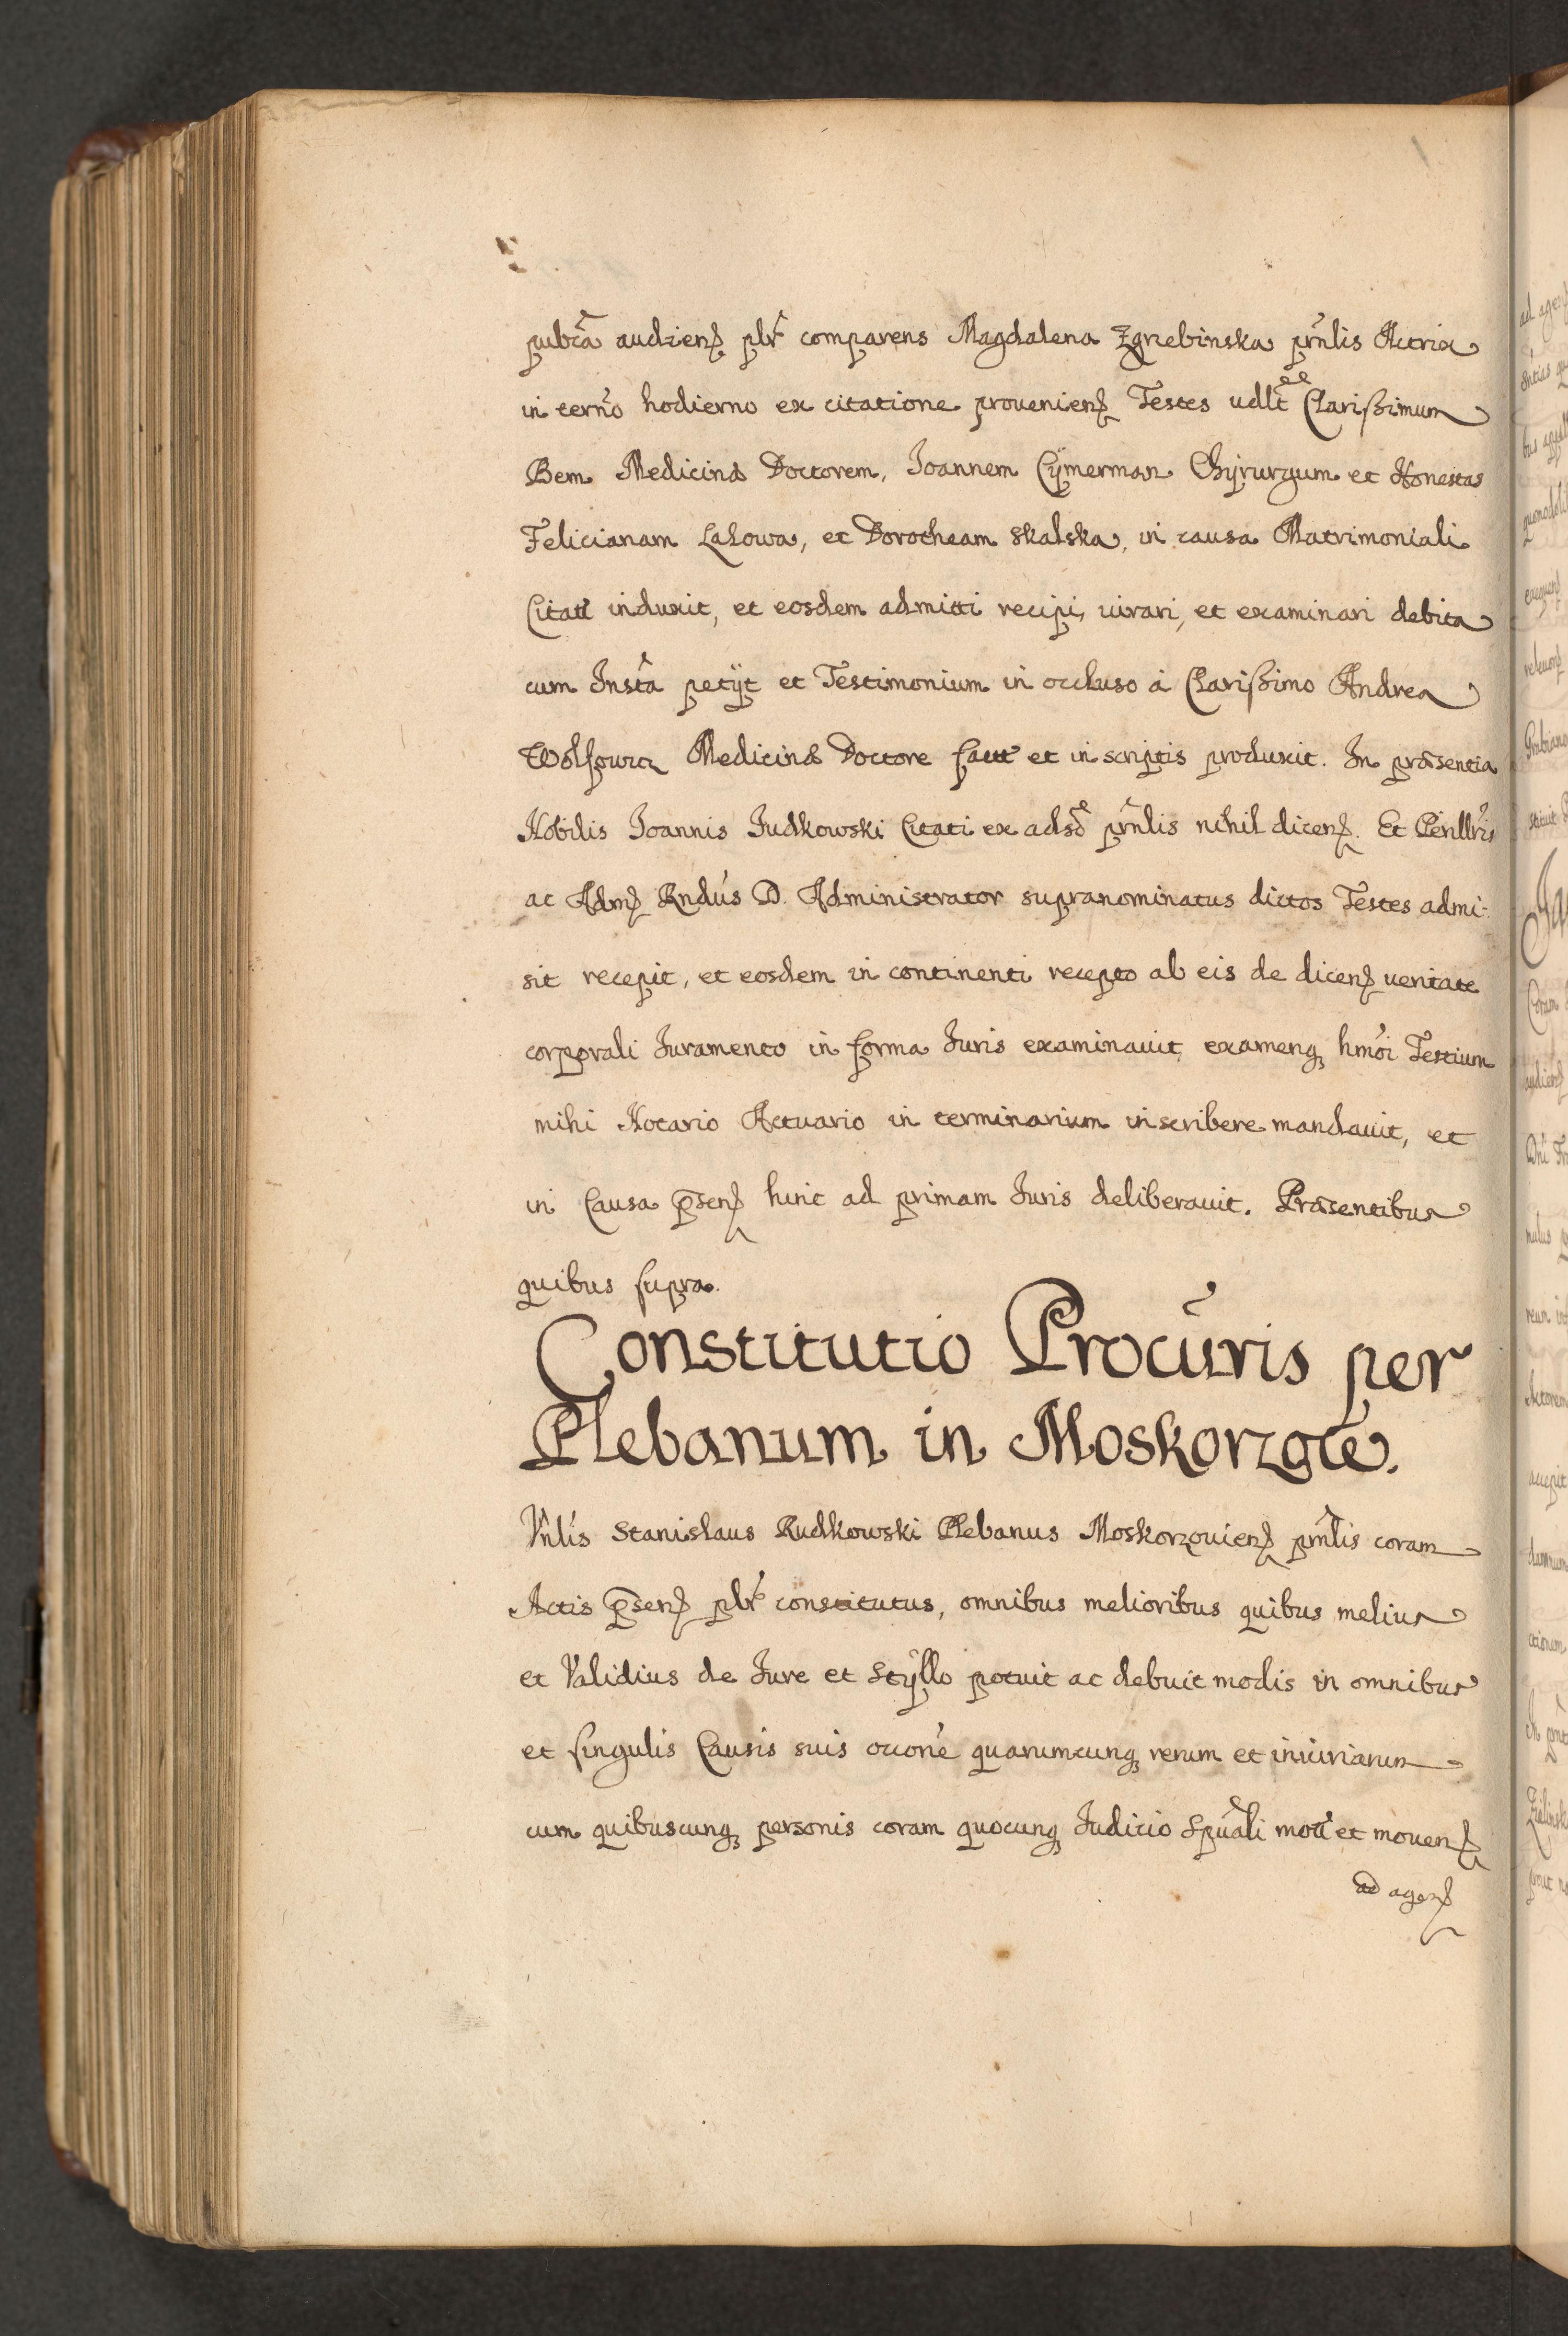 pubca audien plr comparens Magdalena Zgrzebinska prnlis Actrix
in terno hodierno ex citatione provenien Testes udlt Clarissimum
Bem Medicinæ Doctorem, Joannem Cijmerman Chijrurgum et Honestas
Felicianam Lasowa, et Dorotheam Skalska, in causa Matrimoniali
Citati induxit, et eosdem admitti recipi, iurari, et examinari debita
cum Insta petijt et Testimonium in occluso a Clarissimo Andrea
Medicinæ Doctore et in scriptis produxit. In præsentia
Nobilis Joannis Judkowski Citati ex adso prnlis nihil dicen. Et Perillris
ac Adm Rndus D. Administrator supranominatus dictos Testes admi-
sit recepit, et eosdem in continenti recepto ab eis de dicen veritate
corporali Juramento in forma Juris examinavit examenq hmoi Testium
mihi Notario Actuario in terminarium inscribere mandavit, et
in Causa psen hinc ad primam Juris deliberavit. Præsentibus
quibus supra.
Constitutio Procuris per
Plebanum in Moskorzow.
Vnlis Stanislaus Rudkowski Plebanus Moskorzovien prnlis coram
Actis psen plr constitutus, omnibus melioribus quibus melius
et Validius de Jure et Stijllo potuit ac debuit modis in omnibus
et singulis Causis suis occone quarumcunq rerum et iniuriarum
cum quibuscunq personis coram quocunq Judicio Spuali moti et moven
ad agen